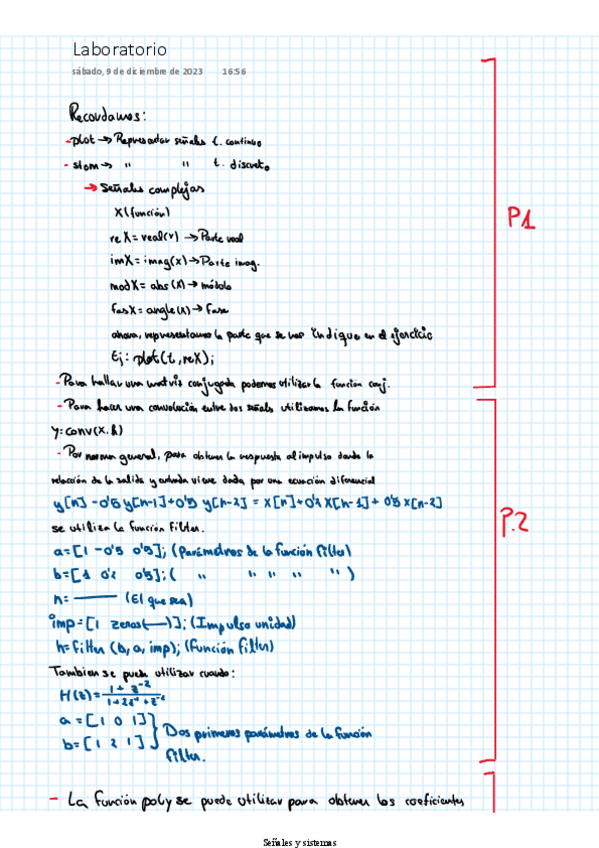 Laboratorio
sábado, 9 de diciembre de 2023 16:56
Recordamos:
-plot → Representar señales t. continuo
- stem → " " t. discreto
→ Señales complejas
X(función)
reX = real(x) → Parte real
imX = imag(x) → Parte imag.
modX = abs(X) → módulo
fasX = angle(X) → Fase
ahora, representamos la parte que se nos indique en el ejercicio
Ej: plot(t, reX);
P1
- Para hallar una matriz conjugada podemos utilizar la función conj.
- Para hacer una convolución entre dos señales utilizamos la función
y=conv(x,h)
- Por norma general, para obtener la respuesta al impulso donde la
relación de la salida y entrada viene dada por una ecuación diferencial
y[n] -0'5 y[n-1]+0'9 y[n-2] = x[n]+0'2 x[n-1]+ 0'5 x[n-2]
se utiliza la función filter.
a=[1 -0'5 0'9]; (Parámetros de la función filter)
b=[1 0'2 0'5]; ( " " " " " " )
n= (El que sea)
imp=[1 zeros( )]; (Impulso unidad)
h=filter (b, a, imp); (función filter)
P.2
Tambien se puede utilizar cuando:
H(z)= 1 + z⁻² / 1+2z⁻¹ + z⁻²
a = [1 0 1]
b = [1 2 1] } Dos primeros parámetros de la función
filter.
- La función poly se puede utilizar para obtener los coeficientes
Señales y sistemas